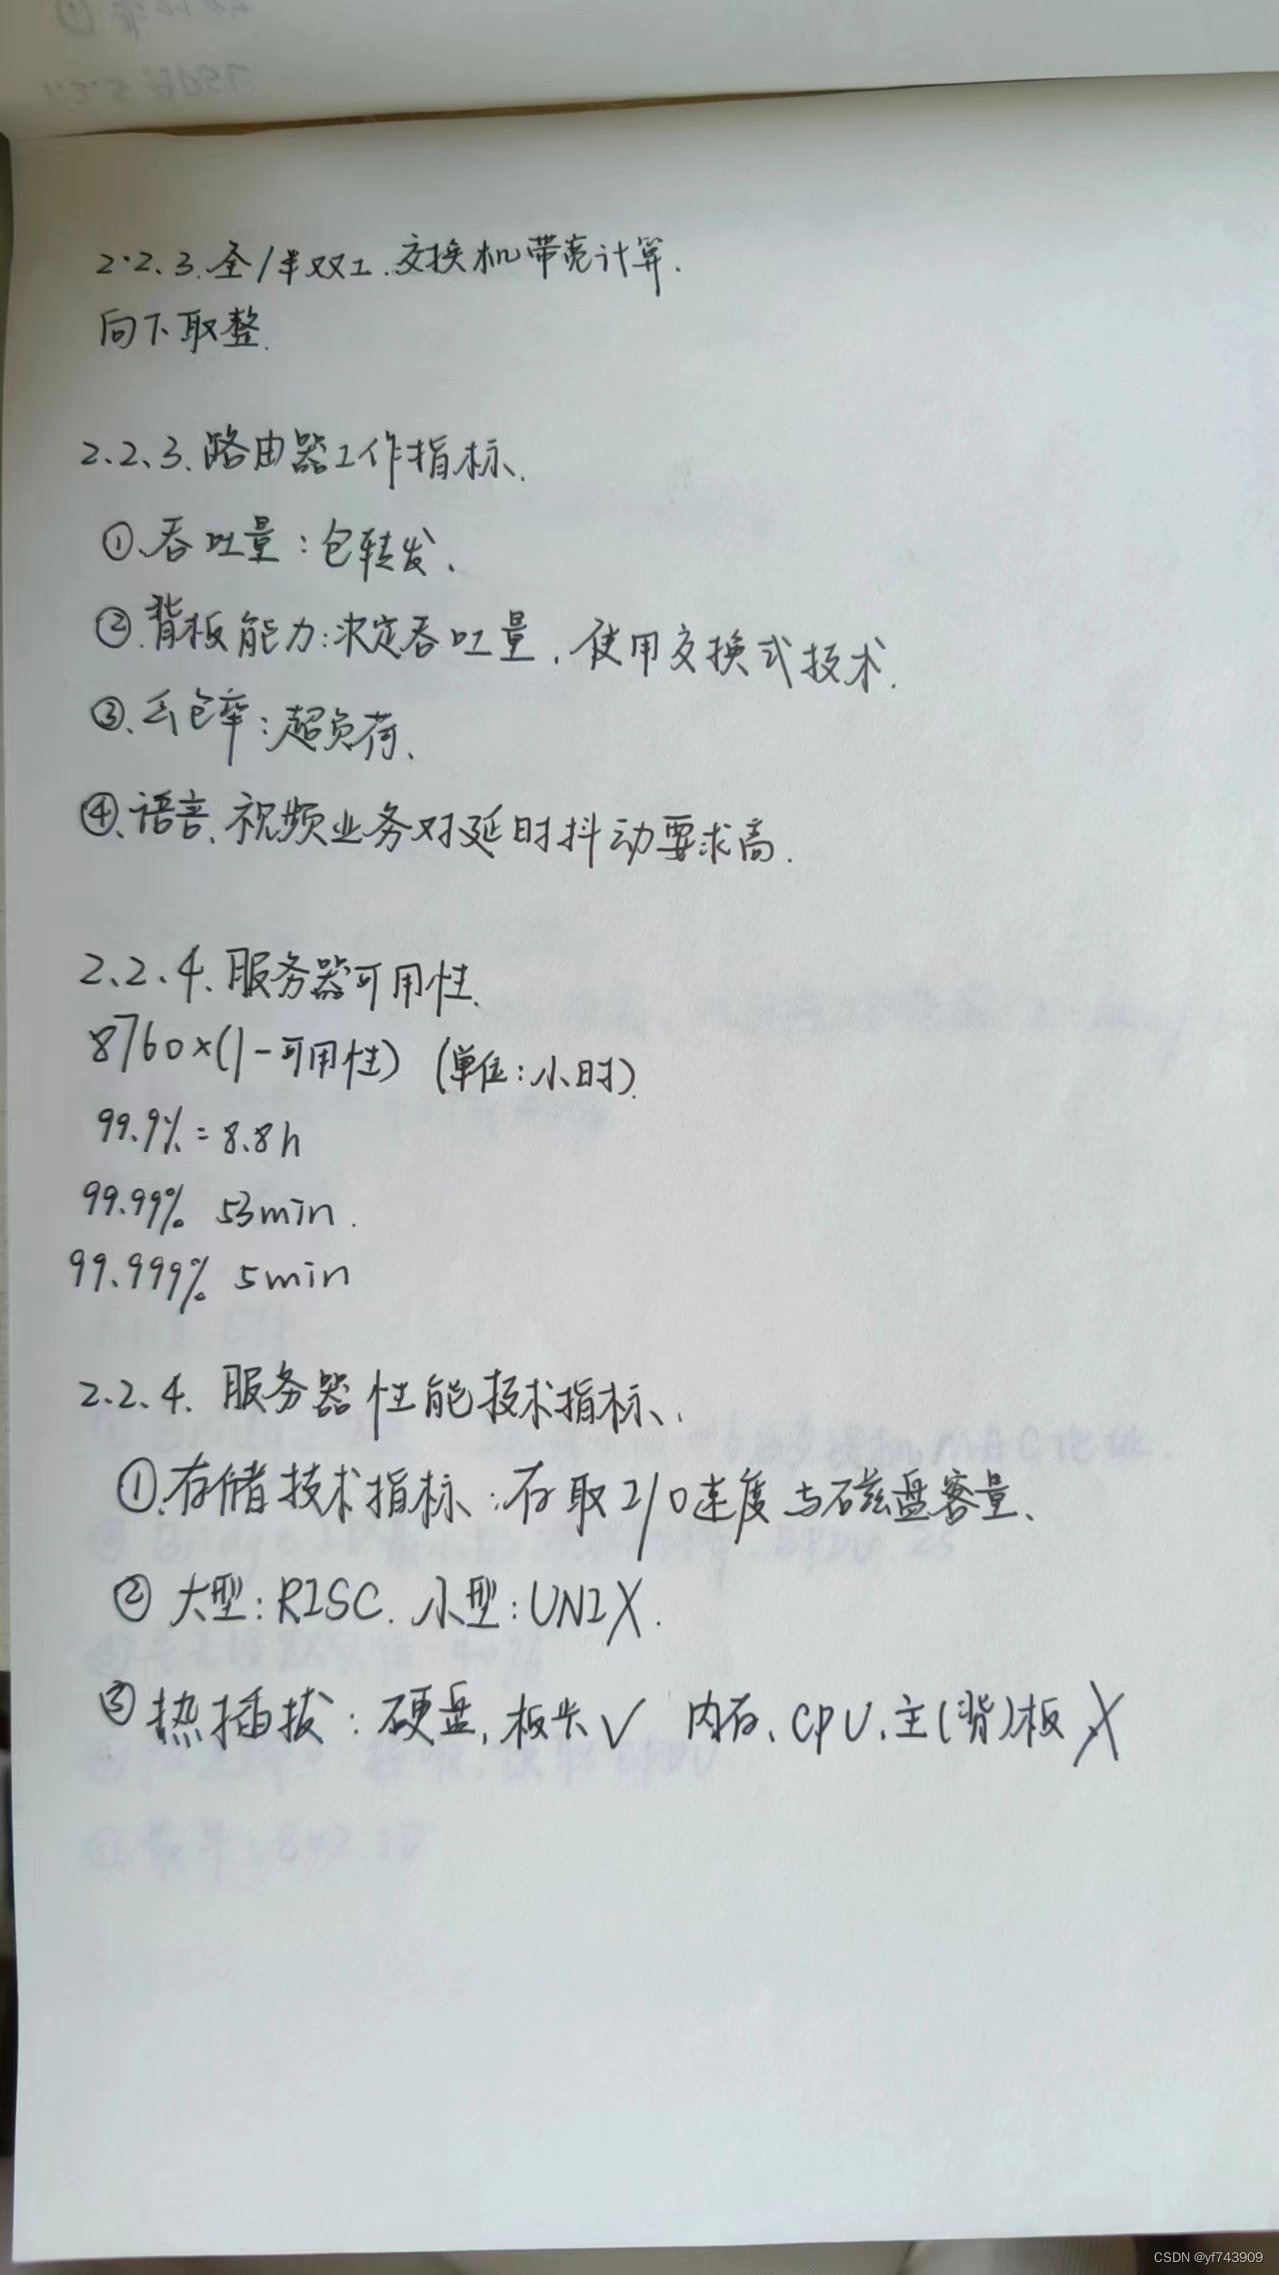 2.2.3.全/半双工.交换机带宽计算.
向下取整.
2.2.3.路由器工作指标.
①.吞吐量:包转发.
②.背板能力:决定吞吐量,使用交换式技术.
③.丢包率:超负荷.
④.语言、视频业务对延时抖动要求高.
2.2.4.服务器可用性.
8760×(1-可用性) (单位:小时)
99.9%=8.8h
99.99% 53min.
99.999% 5min
2.2.4.服务器性能技术指标.
①.存储技术指标:存取I/O速度与磁盘容量.
② 大型:RISC. 小型:UNIX.
③ 热插拔:硬盘,板卡√ 内存、CPU、主(背)板X
CSDN @yf743909